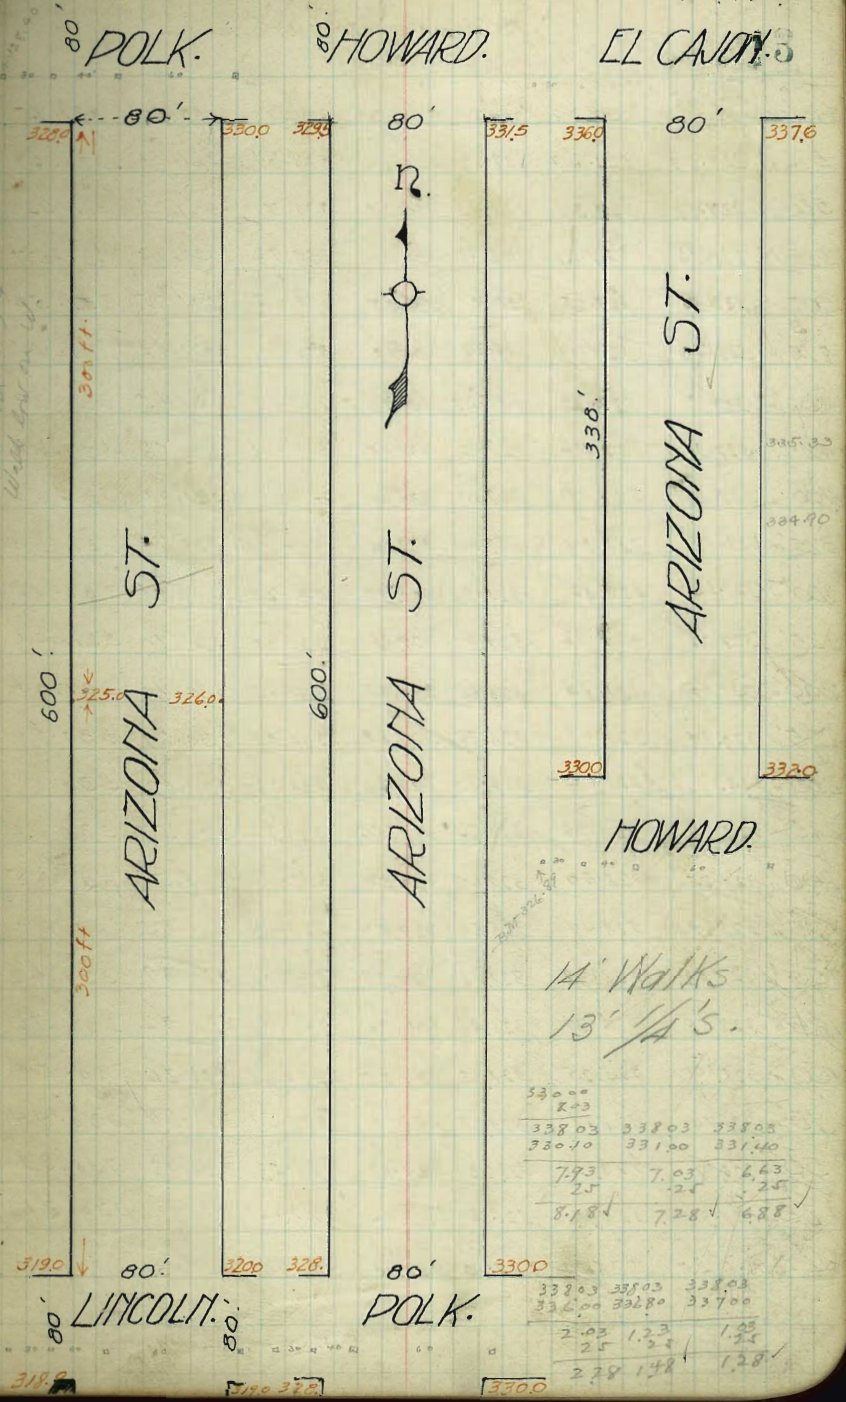 80' POLK. 80' HOWARD. EL CAJON.
328.0 80' 330.0 329.5 80' 331.5 336.0 80' 337.6
n.
300 ft.
338.'
ARIZONA ST.
335.33
334.90
600'.
325.0 326.0
ARIZONA ST.
600.'
ARIZONA ST.
330.0 332.0
HOWARD.
300 ft
14' Walks
13' 1/4's.
8.03
338 03 338 03 338 03
330.10 331.00 331.40
7.93 7.03 6.63
25 .25 .25
8.18 7.28 6.88
319.0 80.' 320.0 328. 80' 330.0
80' LINCOLN. 80. POLK.
338 03 338 03 338.03
336.00 336.80 337 00
2.03 1.23 1.03
25 25 25
2.28 1.48 1.28
318.9 319.0 328. 330.0